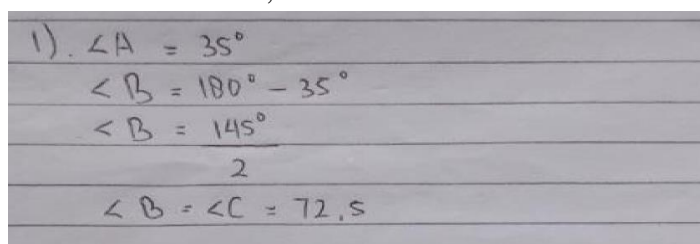 1). ∠A = 35°
∠B = 180° - 35°
∠B = 145°
2
∠B = ∠C = 72.5